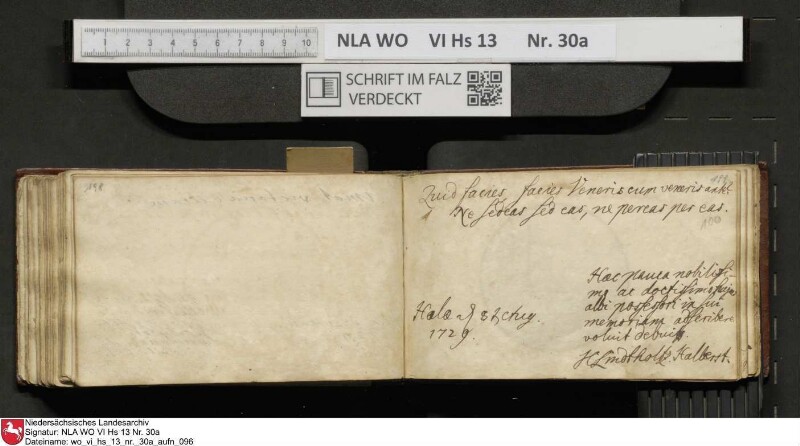 1 2 3 4 5 6 7 8 9 10
NLA WO VI Hs 13 Nr. 30a
SCHRIFT IM FALZ
VERDECKT
198
Quid facies, facies Veneris cum veneris ante
Ne sedeas sed eas, ne pereas per eas.
100
Hæc pauca nobilissi-
mo ac doctissimo
albi possessori in sui
memoriam adscribere
voluit debuit
Halæ d 8 Aug.
1729.
HLindtholtz Halberst.
Niedersächsisches Landesarchiv
Signatur: NLA WO VI Hs 13 Nr. 30a
Dateiname: wo_vi_hs_13_nr._30a_aufn_096